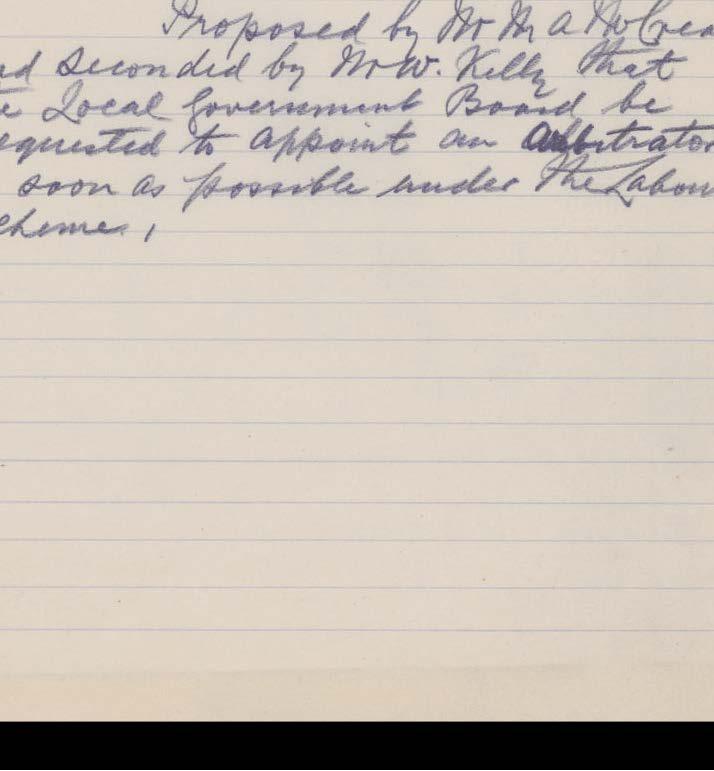 Proposed by Mr M A McCrea
nd seconded by Mr W. Kelly that
e Local Government Board be
equested to appoint an Arbitrator
soon as possible under the Labou
cheme,